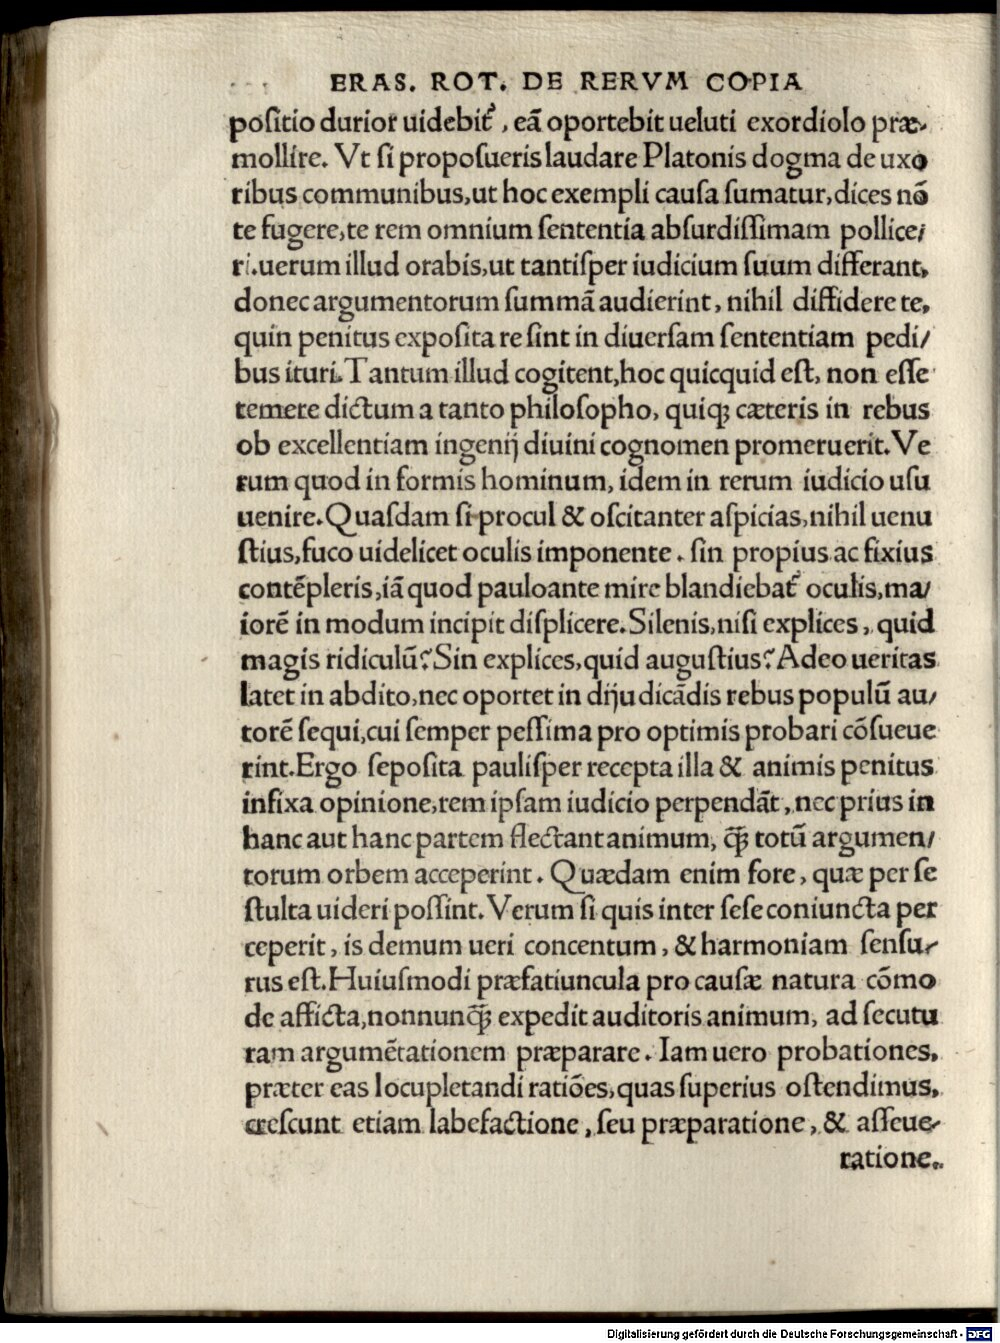 ERAS. ROT. DE RERVM COPIA
poſitio durior uidebit᷑, eã oportebit ueluti exordiolo præ-
mollire. Vt ſi propoſueris laudare Platonis dogma de uxo
ribus communibus, ut hoc exempli cauſa ſumatur, dices nõ
te fugere, te rem omnium ſententia abſurdiſſimam pollice/
ri. uerum illud orabis, ut tantiſper iudicium ſuum differant,
donec argumentorum ſummã audierint, nihil diffidere te,
quin penitus expoſita re ſint in diuerſam ſententiam pedi/
bus ituri. Tantum illud cogitent, hoc quicquid eſt, non eſſe
temere dictum a tanto philoſopho, quiqꝫ cæteris in rebus
ob excellentiam ingenij diuini cognomen promeruerit. Ve
rum quod in formis hominum, idem in rerum iudicio uſu
uenire. Quaſdam ſi procul & oſcitanter aſpicias, nihil uenu
ſtius, fuco uidelicet oculis imponente. ſin propius ac fixius
contẽpleris, iã quod pauloante mire blandiebat᷑ oculis, ma/
iorẽ in modum incipit diſplicere. Silenis, niſi explices, quid
magis ridiculũ? Sin explices, quid auguſtius? Adeo ueritas
latet in abdito, nec oportet in dijudicãdis rebus populũ au/
torẽ ſequi, cui ſemper peſſima pro optimis probari cõſueue
rint. Ergo ſepoſita pauliſper recepta illa & animis penitus
infixa opinione, rem ipſam iudicio perpendãt, nec prius in
hanc aut hanc partem flectant animum, q̃ꝫ totũ argumen/
torum orbem acceperint. Quædam enim fore, quæ per ſe
ſtulta uideri poſſint. Verum ſi quis inter ſeſe coniuncta per
ceperit, is demum ueri concentum, & harmoniam ſenſu-
rus eſt. Huiuſmodi præfatiuncula pro cauſæ natura cõmo
de afficta, nonnunq̃ꝫ expedit auditoris animum, ad ſecutu
ram argumẽtationem præparare. Iam uero probationes,
præter eas locupletandi ratiões, quas ſuperius oſtendimus,
creſcunt etiam labefactione, ſeu præparatione, & aſſeue-
ratione.
Digitalisierung gefördert durch die Deutsche Forschungsgemeinschaft - DFG